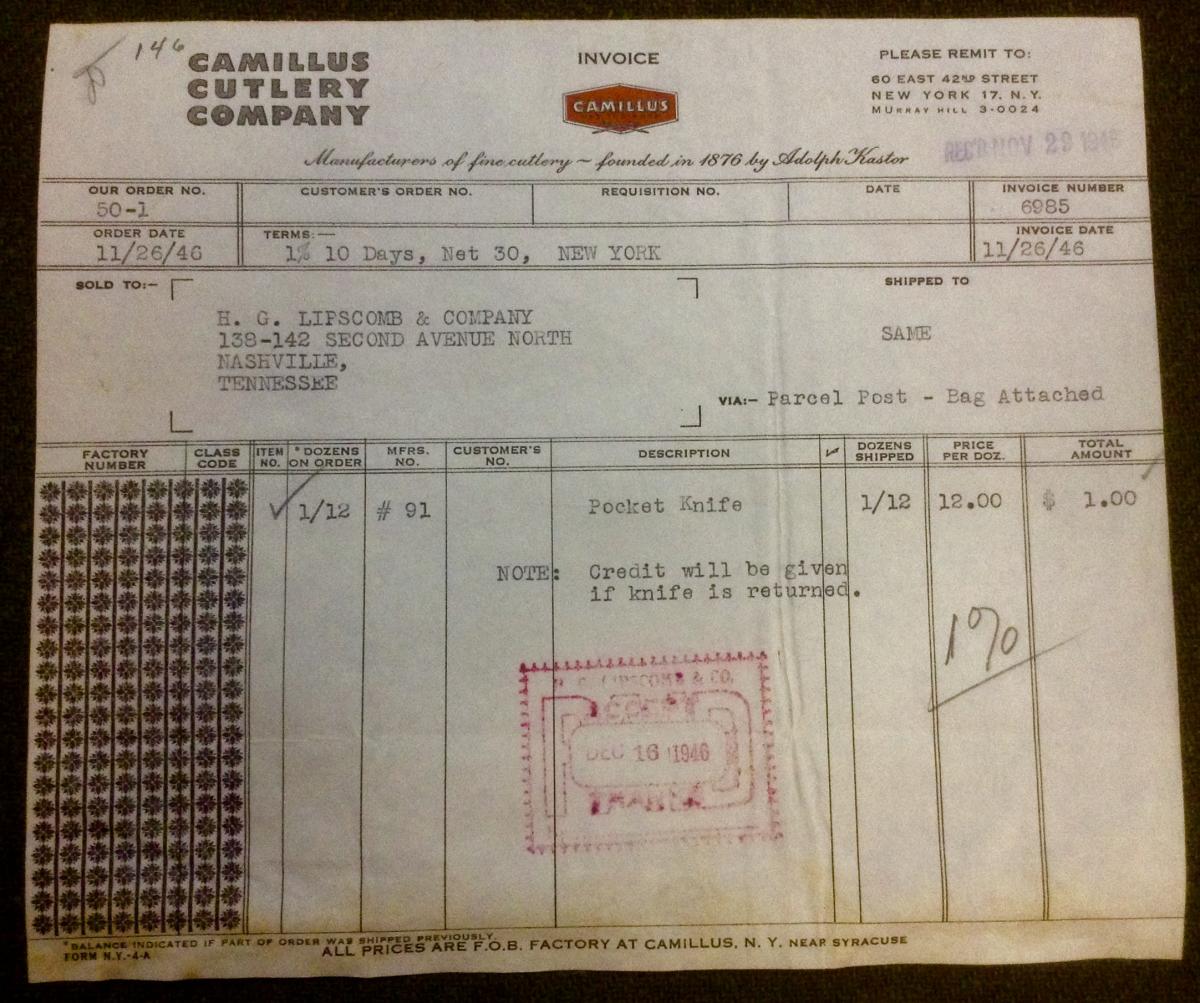 146
CAMILLUS
CUTLERY
COMPANY
INVOICE
CAMILLUS
PLEASE REMIT TO:
60 EAST 42ND STREET
NEW YORK 17, N.Y.
MURRAY HILL 3-0024
Manufacturers of fine cutlery ~ founded in 1876 by Adolph Kastor
REC'D NOV 29 1946
OUR ORDER NO.
50-1
CUSTOMER'S ORDER NO.
REQUISITION NO.
DATE
INVOICE NUMBER
6985
ORDER DATE
11/26/46
TERMS:—
1% 10 Days, Net 30, NEW YORK
INVOICE DATE
11/26/46
SOLD TO:-
H. G. LIPSCOMB & COMPANY
138-142 SECOND AVENUE NORTH
NASHVILLE,
TENNESSEE
SHIPPED TO
SAME
VIA:- Parcel Post - Bag Attached
FACTORY NUMBER
CLASS CODE
ITEM NO.
*DOZENS ON ORDER
MFRS. NO.
CUSTOMER'S NO.
DESCRIPTION
DOZENS SHIPPED
PRICE PER DOZ.
TOTAL AMOUNT
1/12 # 91 Pocket Knife 1/12 12.00 $ 1.00
NOTE: Credit will be given
if knife is returned.
1%
LIPSCOMB & CO.
DEC 16 1946
*BALANCE INDICATED IF PART OF ORDER WAS SHIPPED PREVIOUSLY.
FORM N.Y.-4-A
ALL PRICES ARE F.O.B. FACTORY AT CAMILLUS, N. Y. NEAR SYRACUSE